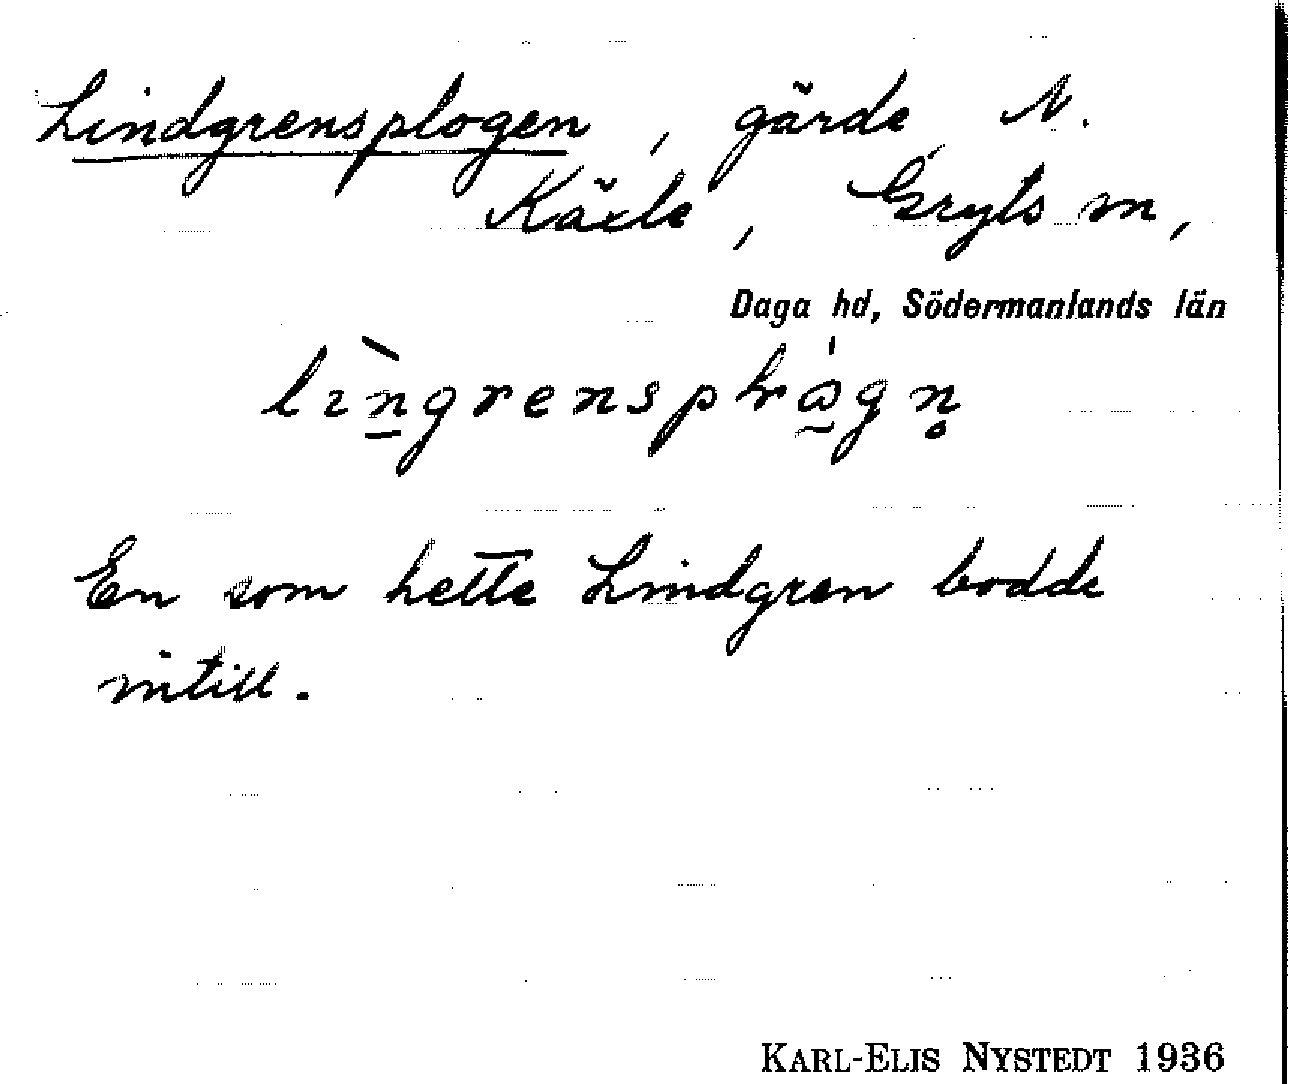 Lindgrensplogen, gärde, N.
Käxle, Gryts sn,
Daga hd, Södermanlands län
En som hette Lindgren bodde
intill.
KARL-ELIS NYSTEDT 1936